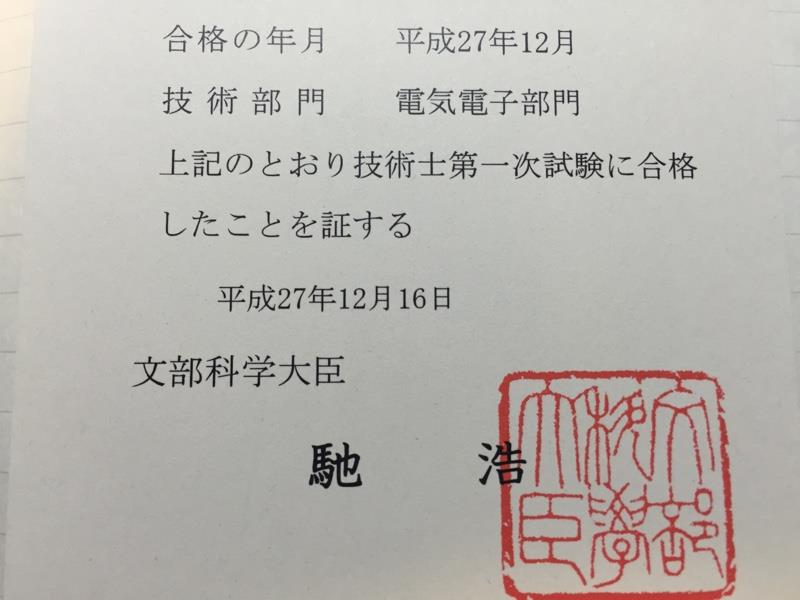 合格の年月 平成27年12月
技術部門 電気電子部門
上記のとおり技術士第一次試験に合格
したことを証する
平成27年12月16日
文部科学大臣
馳 浩
文部科學大臣